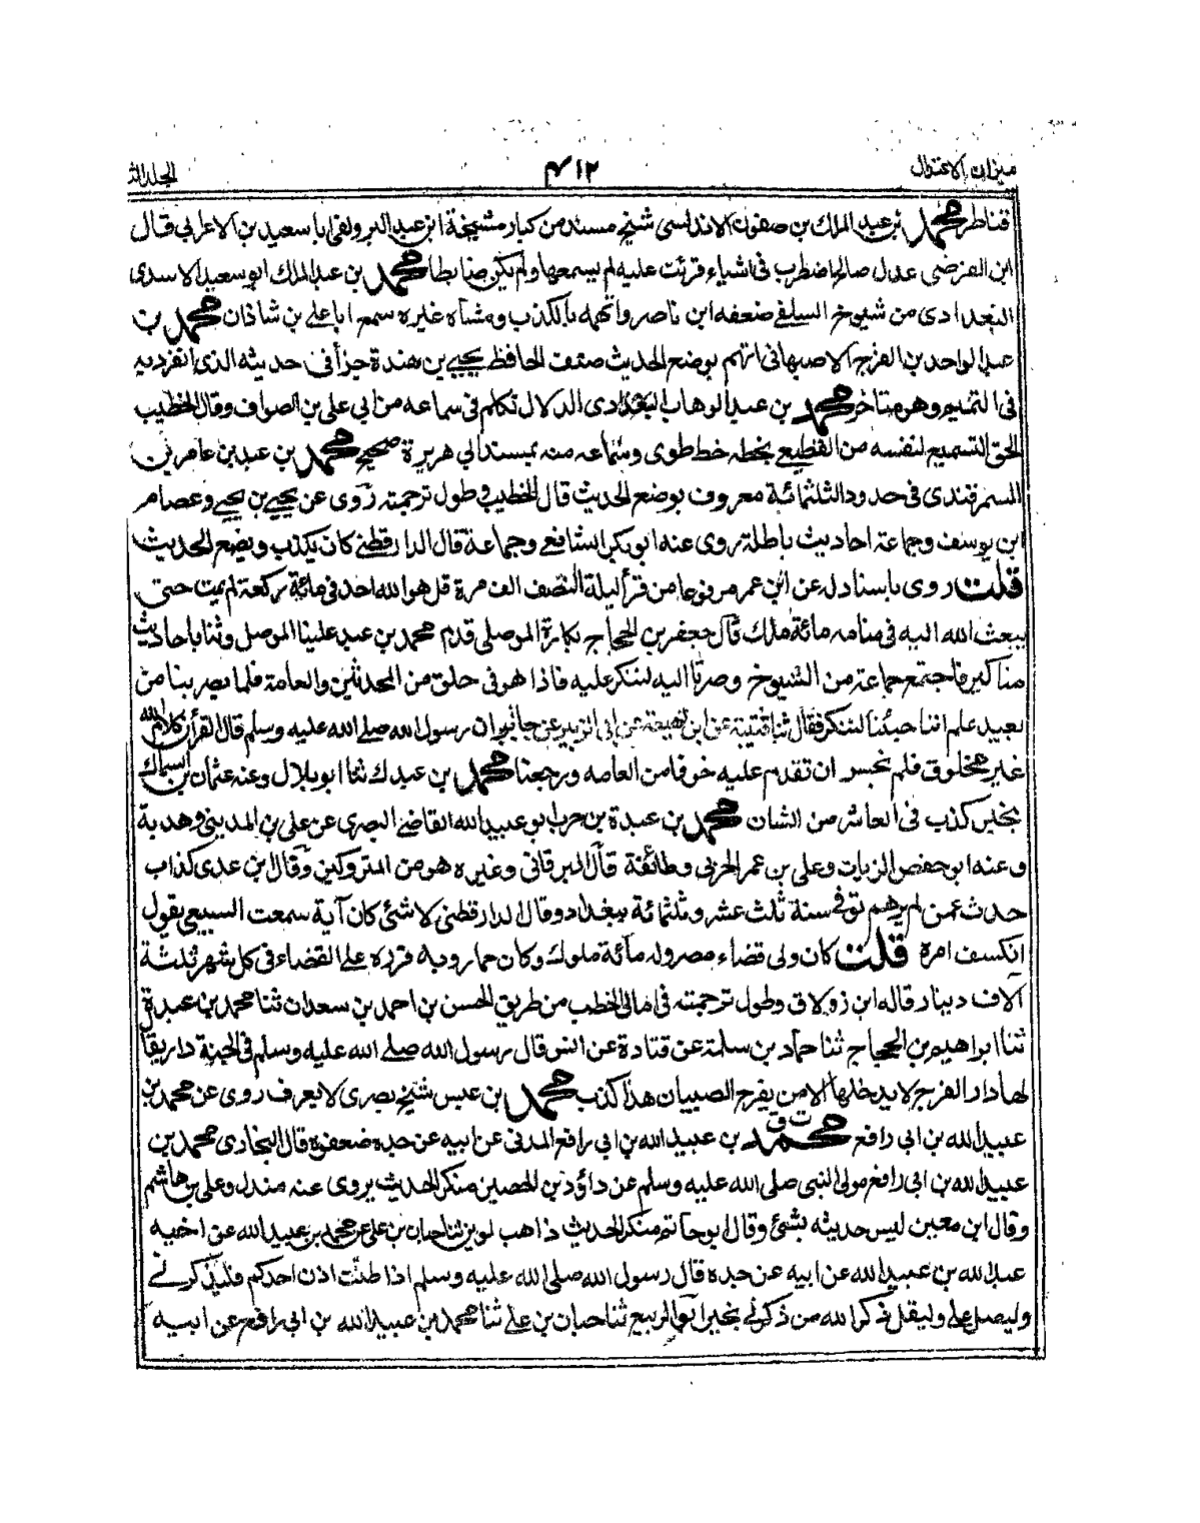 ميزان الاعتدال ٤١٢ الجلد الثا
قناطر محمد بن عبد الملك بن صفوان الاندلسى شيخ مسند من كبار مشيخة ابن عبد البر ولقى ابا سعيد بن الاعرابى قال
ابن الفرضى عدل صالح اضطرب فى اشياء قرئت عليه لم يسمعها ولم يكن ضابطا محمد بن عبد الملك ابو سعيد الاسدى
البغدادى من شيوخ السلفى ضعفه ابن ناصر واتهمه بالكذب ومشاه غيره سمع ابا على بن شاذان محمد بن
عبد الواحد بن الفرج الاصبهانى اتهم بوضع الحديث صنف الحافظ يحيى بن مندة جزأ فى حديثه الذى انفرد به
فى التميم وهو متاخر محمد بن عبد الوهاب البغدادى الدلال تكلم فى سماعه من ابى على بن الصواف وقال الخطيب
الحق التسميع لنفسه من القطيعى بخطه خط طوى وسماعه منه بمسند ابى هريرة صحيح محمد بن عبد بن عامر بن
السمرقندى فى حدود الثلثمائة معروف بوضع الحديث قال الخطيب وطول ترجمته روى عن يحيى بن يحيى وعصام
ابن يوسف وجماعة احاديث باطلة روى عنه ابو بكر الشافعى وجماعة قال الدارقطنى كان يكذب ويضع الحديث
قلت روى باسناد له عن ابن عمر مرفوعا من قرأ ليلة النصف الف مرة قل هو الله احد فى مائة ركعة لم يمت حتى
يبعث الله اليه فى منامه مائة ملك قال جعفر بن الحجاج بكارة الموصلى قدم محمد بن عبد علينا الموصل وثنا باحاديث
مناكير فاجتمع جماعة من الشيوخ وصرنا اليه لننكر عليه فاذا هو فى حلق من المحدثين والعامة فلما بصر بنا من
بعيد علم اننا جئنا لننكر فقال ثنا قتيبة عن ابن لهيعة عن ابى الزبير عن جابر ان رسول الله صلى الله عليه وسلم قال القرأن كلام الله
غير مخلوق فلم نجسر ان نقدم عليه خوفا من العامه ورجعنا محمد بن عبدك ثنا ابو بلال وعنه عثمان بن السماك
بخبر كذب فى العاشر من الشان محمد بن عبدة بن حرب ابو عبيد الله القاضى البصرى عن على بن المدينى وهدبة
وعنه ابو حفص الزيات وعلى بن عمر الحربى وطائفة قال البرقانى وغيره هو من المتروكين وقال ابن عدى كذاب
حدث عمن لم يرهم توفى سنة ثلث عشر وثلثمائة ببغداد وقال الدارقطنى لاشئ كان آية سمعت السبيعى يقول
انكسف امره قلت كان ولى قضاء مصر وله مائة مملوك وكان خمارويه قرره على القضاء فى كل شهر ثلثة
آلاف دينار قاله ابن زولاق وطول ترجمته فى امالى الخطب من طريق الحسن بن احمد بن سعدان ثنا محمد بن عبدة
ثنا ابراهيم بن الحجاج ثنا حماد بن سلمة عن قتادة عن انس قال رسول الله صلى الله عليه وسلم فى الجنة دار يقال
لها دار الفرح لا يدخلها الا من يفرح الصبيان هذا كذب محمد بن عبس شيخ بصرى لا يعرف روى عن محمد بن
عبيد الله بن ابى رافع محمد ت ق بن عبيد الله بن ابى رافع المدنى عن ابيه عن جده ضعفوه قال البخارى محمد بن
عبيد الله بن ابى رافع مولى النبى صلى الله عليه وسلم عن داؤد بن الحصين منكر الحديث يروى عنه مندل وعلى بن هاشم
وقال ابن معين ليس حديثه بشئ وقال ابو حاتم منكر الحديث ذاهب لوين ثنا حبان بن على عن محمد بن عبيد الله عن اخيه
عبد الله بن عبيد الله عن ابيه عن جده قال رسول الله صلى الله عليه وسلم اذا طنت اذن احدكم فليذكرنى
وليصل على وليقل ذكر الله من ذكرنى بخير ابو الربيع ثنا حبان بن على ثنا محمد بن عبيد الله بن ابى رافع عن ابيه